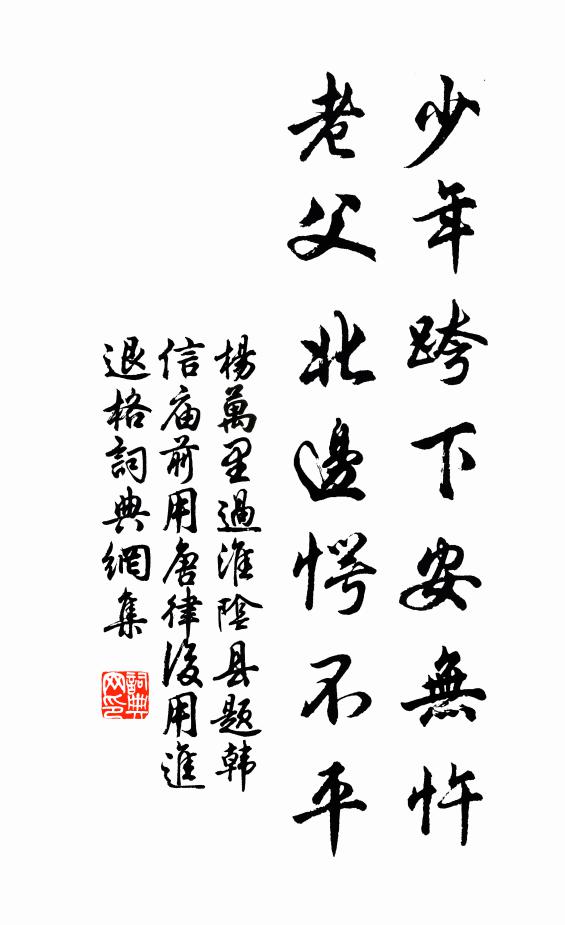 少年跨下安無忤
老父北邊愕不平
楊萬里過淮陰县題韓
信庙前用唐律後用進
退格詞典網集
詞典
网印